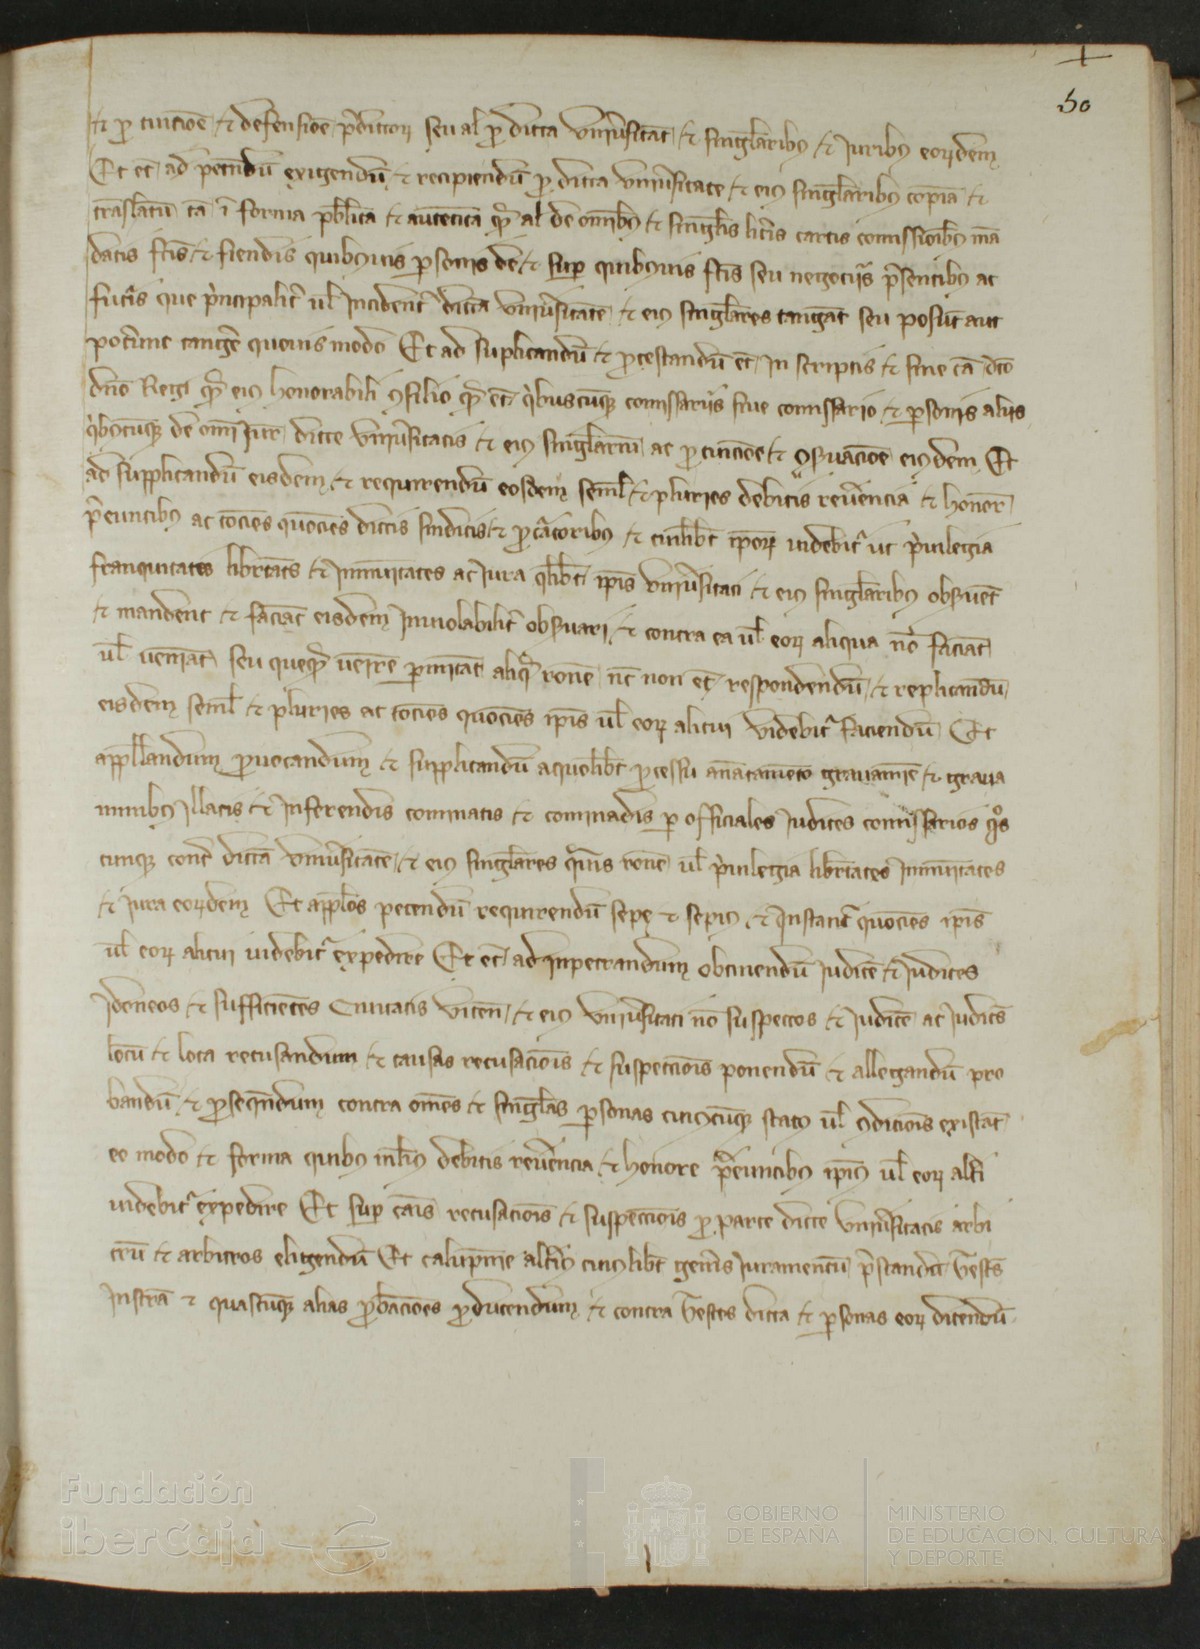 50
et p tuicioẽ et defensioẽ p̃dictor seu al p dicta vniu̾sitat et singl̃aribꝫ et Iuribꝫ eordem
Et et̃ ad petendũ exigendũ et recipiendũ p dicta vniu̾sitate et eiꝫ singl̃aribꝫ copia et
traslatũ tã ĩ forma pb̃lica et autẽtica q̃ al de om̃ibꝫ et singl̃is lr̃is cartis comissioĩbꝫ mã
datis fc̃is et fiendis quibꝫuis psonis de et sup quibꝫuis fc̃is seu negociis p̃sentibꝫ ac
futr̃is que p̃ncipalit̃ ul̃ Incident̃ dictã vniu̾sitatẽ et eiꝫ singl̃ares tangãt seu possũt aut
pot̃unt tanger̃ queuis modo Et ad suplicandũ et ptestandũ et̃ In scriptis et sine tã dc̃o
dño Regi q̃ eiꝫ honorabili ꝯsilio q̃ et̃ q̃buscũqꝫ comissariis siue comissario et psonis aliis
q̃bꝫcũqꝫ de om̃i Iur̃ dicte vniu̾sitatis et eiꝫ singl̃ariũ ac p tuicioẽ et ꝯs̃uacioẽ eiꝫdem Et
ad supplicandũ eisdem et requirendũ eosdem sem̃l et pluries debitis reu̾encia et honor̃
p̃euntibꝫ ac tociẽs quociẽs dictis sindicis et pcãtoribꝫ et cuil̃bt ip̃or uidebit̃ ut p̃uilegia
franquitates libr̃tats et Inmũitates ac Iura ql̃bt ip̃is vniu̾sitati et eiꝫ singl̃aribꝫ obs̃uẽt
et mandent et faciãt eisdem Inuiolabilit̃ obs̃uari et contra ea ul̃ eor aliqua nõ faciãt
ul̃ ueniãt seu quẽq̃ uenire pmitãt aliq̃ ronẽ nc̃ non et̃ respondendũ et replicandũ
eisdem sem̃l et pluries ac tociẽs quociẽs ip̃is ul̃ eor alicui videbit̃ faciendũ Et
appellandum puocandum et supplicandũ a quol̃bt pcessu anãtameto grauamie et graua
minibꝫ Illatis et Inferendis cominatis et cominãdis p officiales Iudices comissarios q̃os
cunqꝫ cont̃ dictã vniu̾sitatẽ et eiꝫ singl̃ares q̃uis ronẽ ul̃ p̃uilegia libr̃tates Inmũitates
et Iura eordem Et appl̃os petendũ requirendũ sepe et sepiꝫ et Instant̃ quociẽs ip̃is
ul̃ eor alicui uidebit̃ expedire Et et̃ ad Inpetrandum obtinendũ Iudicẽ et Iudices
Idoneos et sufficiẽtes Ciuitatis viteñ et eiꝫ vniu̾sitati nõ suspectos et Iudicẽ ac Iudicẽs
locũ et loca recusandum et causas recusaciois et suspecciois ponendũ et allegandũ pro
bandũ et pseqñdum contra om̃es et singl̃as psonas cuiꝫcũqꝫ statꝫ ul̃ ꝯdiciois existãt
eo modo et forma quibꝫ ml̃iꝫ debitis reu̾encia et honore p̃euntibꝫ ip̃iꝫ ul̃ eor alt̃i
uidebit̃ expedire Et sup cãis recusaciois et suspecciois p parte dicte vniu̾sitatis arbi
trũ et arbitros eligendũ Et calũpnie alt̃iꝫ cuiꝫlibt gen̾is Iuramentũ p̃standũ testes
Instr̃a et quascũqꝫ alias pbãcioẽs pducendum et contra testes dicta et psonas eor dicendũ
Fundación
iberCaja
GOBIERNO
DE ESPAÑA
MINISTERIO
DE EDUCACIÓN, CULTURA
Y DEPORTE